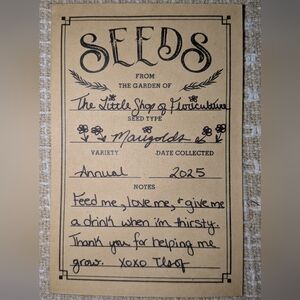 SEEDS
FROM
THE GARDEN OF
The Little Shop of Floriculture
SEED TYPE
Marigolds
VARIETY DATE COLLECTED
Annual 2025
NOTES
Feed me, love me, + give me
a drink when i'm thirsty.
Thank you for helping me
grow. xoxo Tlsof